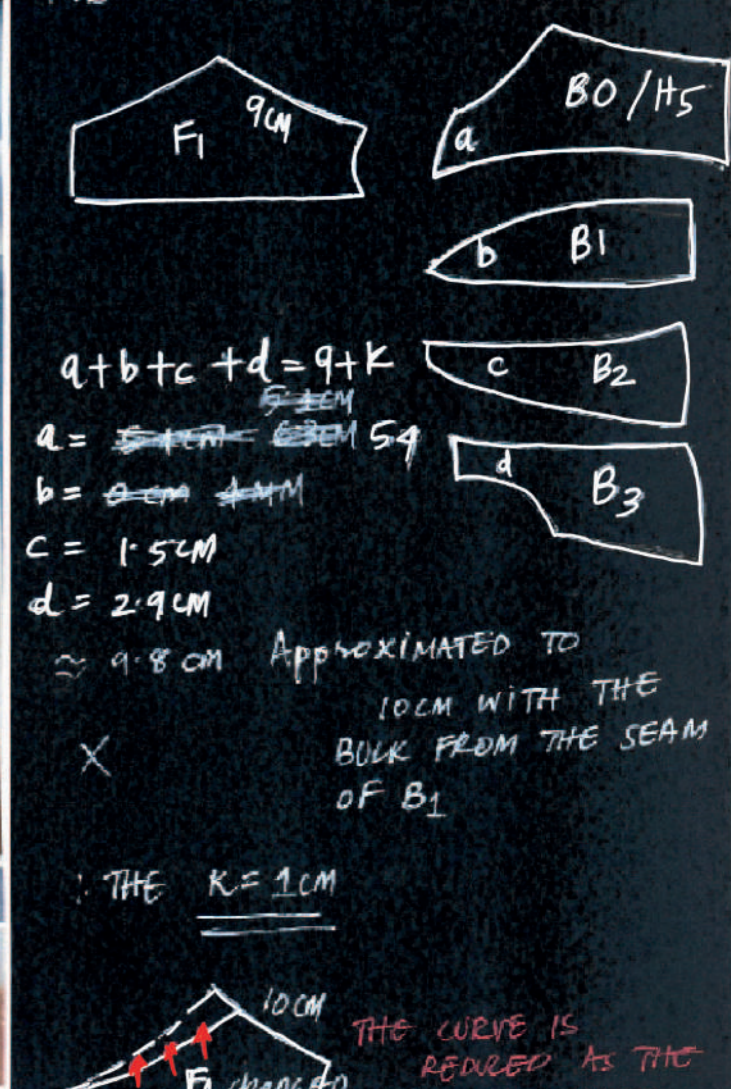 F1
9CM
BO/H5
a
b B1
a+b+c+d=9+K
c B2
5.1CM
a = 5.1CM 6.3CM 54
d B3
b =
c = 1.5CM
d = 2.9CM
≈ 9.8 cm APPROXIMATED TO
10CM WITH THE
BULK FROM THE SEAM
OF B1
X
∴ THE K = 1CM
10CM
THE CURVE IS
REDUCED AS THE
F1 changed